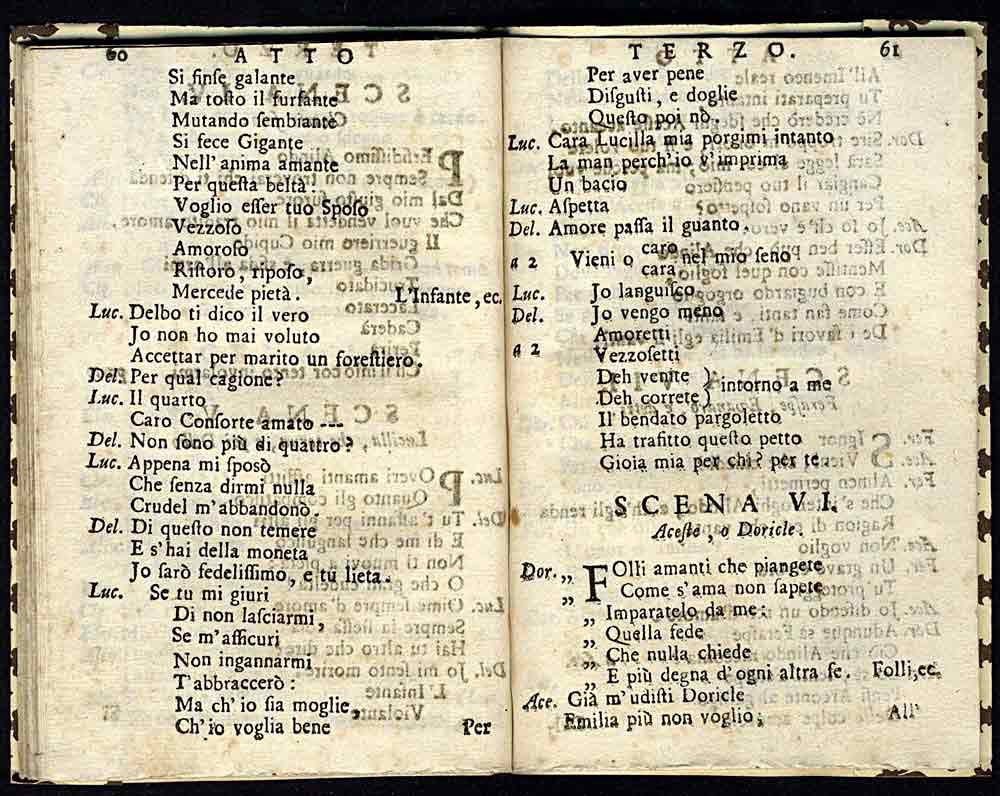 60 ATTO
Si finſe galante
Ma toſto il furfante
Mutando ſembiante
Si fece Gigante
Nell'anima amante
Per queſta beltà.
Voglio eſſer tuo Spoſo
Vezzoſo
Amoroſo
Riſtoro, ripoſo,
Mercede pietà. L'Infante, ec.
Luc. Delbo ti dico il vero
Jo non ho mai voluto
Accettar per marito un foreſtiero.
Del. Per qual cagione?
Luc. Il quarto
Caro Conſorte amato ---
Del. Non ſono più di quattro?
Luc. Appena mi ſposò
Che ſenza dirmi nulla
Crudel m'abbandonò.
Del. Di queſto non temere
E s'hai della moneta
Jo ſarò fedeliſſimo, e tu lieta.
Luc. Se tu mi giuri
Di non laſciarmi,
Se m'aſſicuri
Non ingannarmi
T'abbraccerò:
Ma ch'io ſia moglie,
Ch'io voglia bene
Per
TERZO. 61
Per aver pene
Diſguſti, e doglie
Queſto poi nò.
Luc. Cara Lucilla mia porgimi intanto
La man perch'io v'imprima
Un bacio
Luc. Aſpetta
Del. Amore paſſa il guanto.
a 2 Vieni o caro nel mio ſeno
cara
Luc. Jo languiſco
Del. Jo vengo meno
a 2 Amoretti
Vezzoſetti
Deh venite ) intorno a me
Deh correte )
Il bendato pargoletto
Ha trafitto queſto petto
Gioia mia per chi? per te
SCENA VI.
Aceſte, o Doricle.
Dor. „ FOlli amanti che piangete
„ Come s'ama non ſapete
„ Imparatelo da me:
„ Quella fede
„ Che nulla chiede
„ E più degna d'ogni altra fe. Folli, ec.
Ace. Già m'udiſti Doricle
Emilia più non voglio;
All'